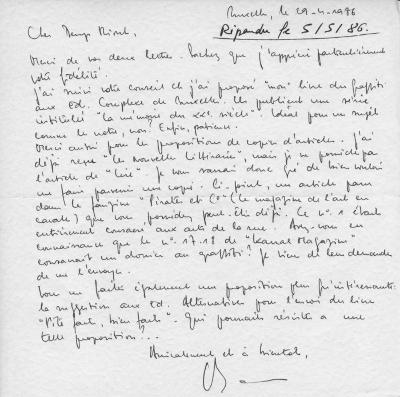 Bruxelles, le 29-4-1986
Répondu le 5/5/86.
Cher
Merci de vos deux lettres. Sachez que j'apprécie particulièrement
votre fidélité.
J'ai suivi votre conseil et j'ai proposé "mon livre de graffiti"
aux Ed. Complexe de Bruxelles. Ils publient une série
intitulée "la mémoire du XXe siècle". Idéal pour un sujet
comme le notre, non? Enfin, patience.
Merci aussi pour les propositions de copies d'articles. J'ai
déjà reçu "les nouvelles littéraires", mais je ne possède pas
l'article de "Lui". Je vous saurai donc gré de bien vouloir
m'en faire parvenir une copie. Ci-joint, un article paru
dans le fanzine "Pirates et Co" (le magazine de l'art en
cavale) que vous possédez peut-être déjà. Ce n° 1 étant
entièrement consacré aux arts de la rue. Avez-vous eu
connaissance que le n° 17-18 de "Kanal Magazine"
consacrait un dossier au graffiti? Je viens de leur demander
de me l'envoyer.
Vous me faites également une proposition plus qu'intéressante:
la suggestion aux Ed. Alternatives pour l'envoi du livre
"Vite fait, bien fait". Qui pourrait résister à une
telle proposition?...
Amicalement et à bientôt,